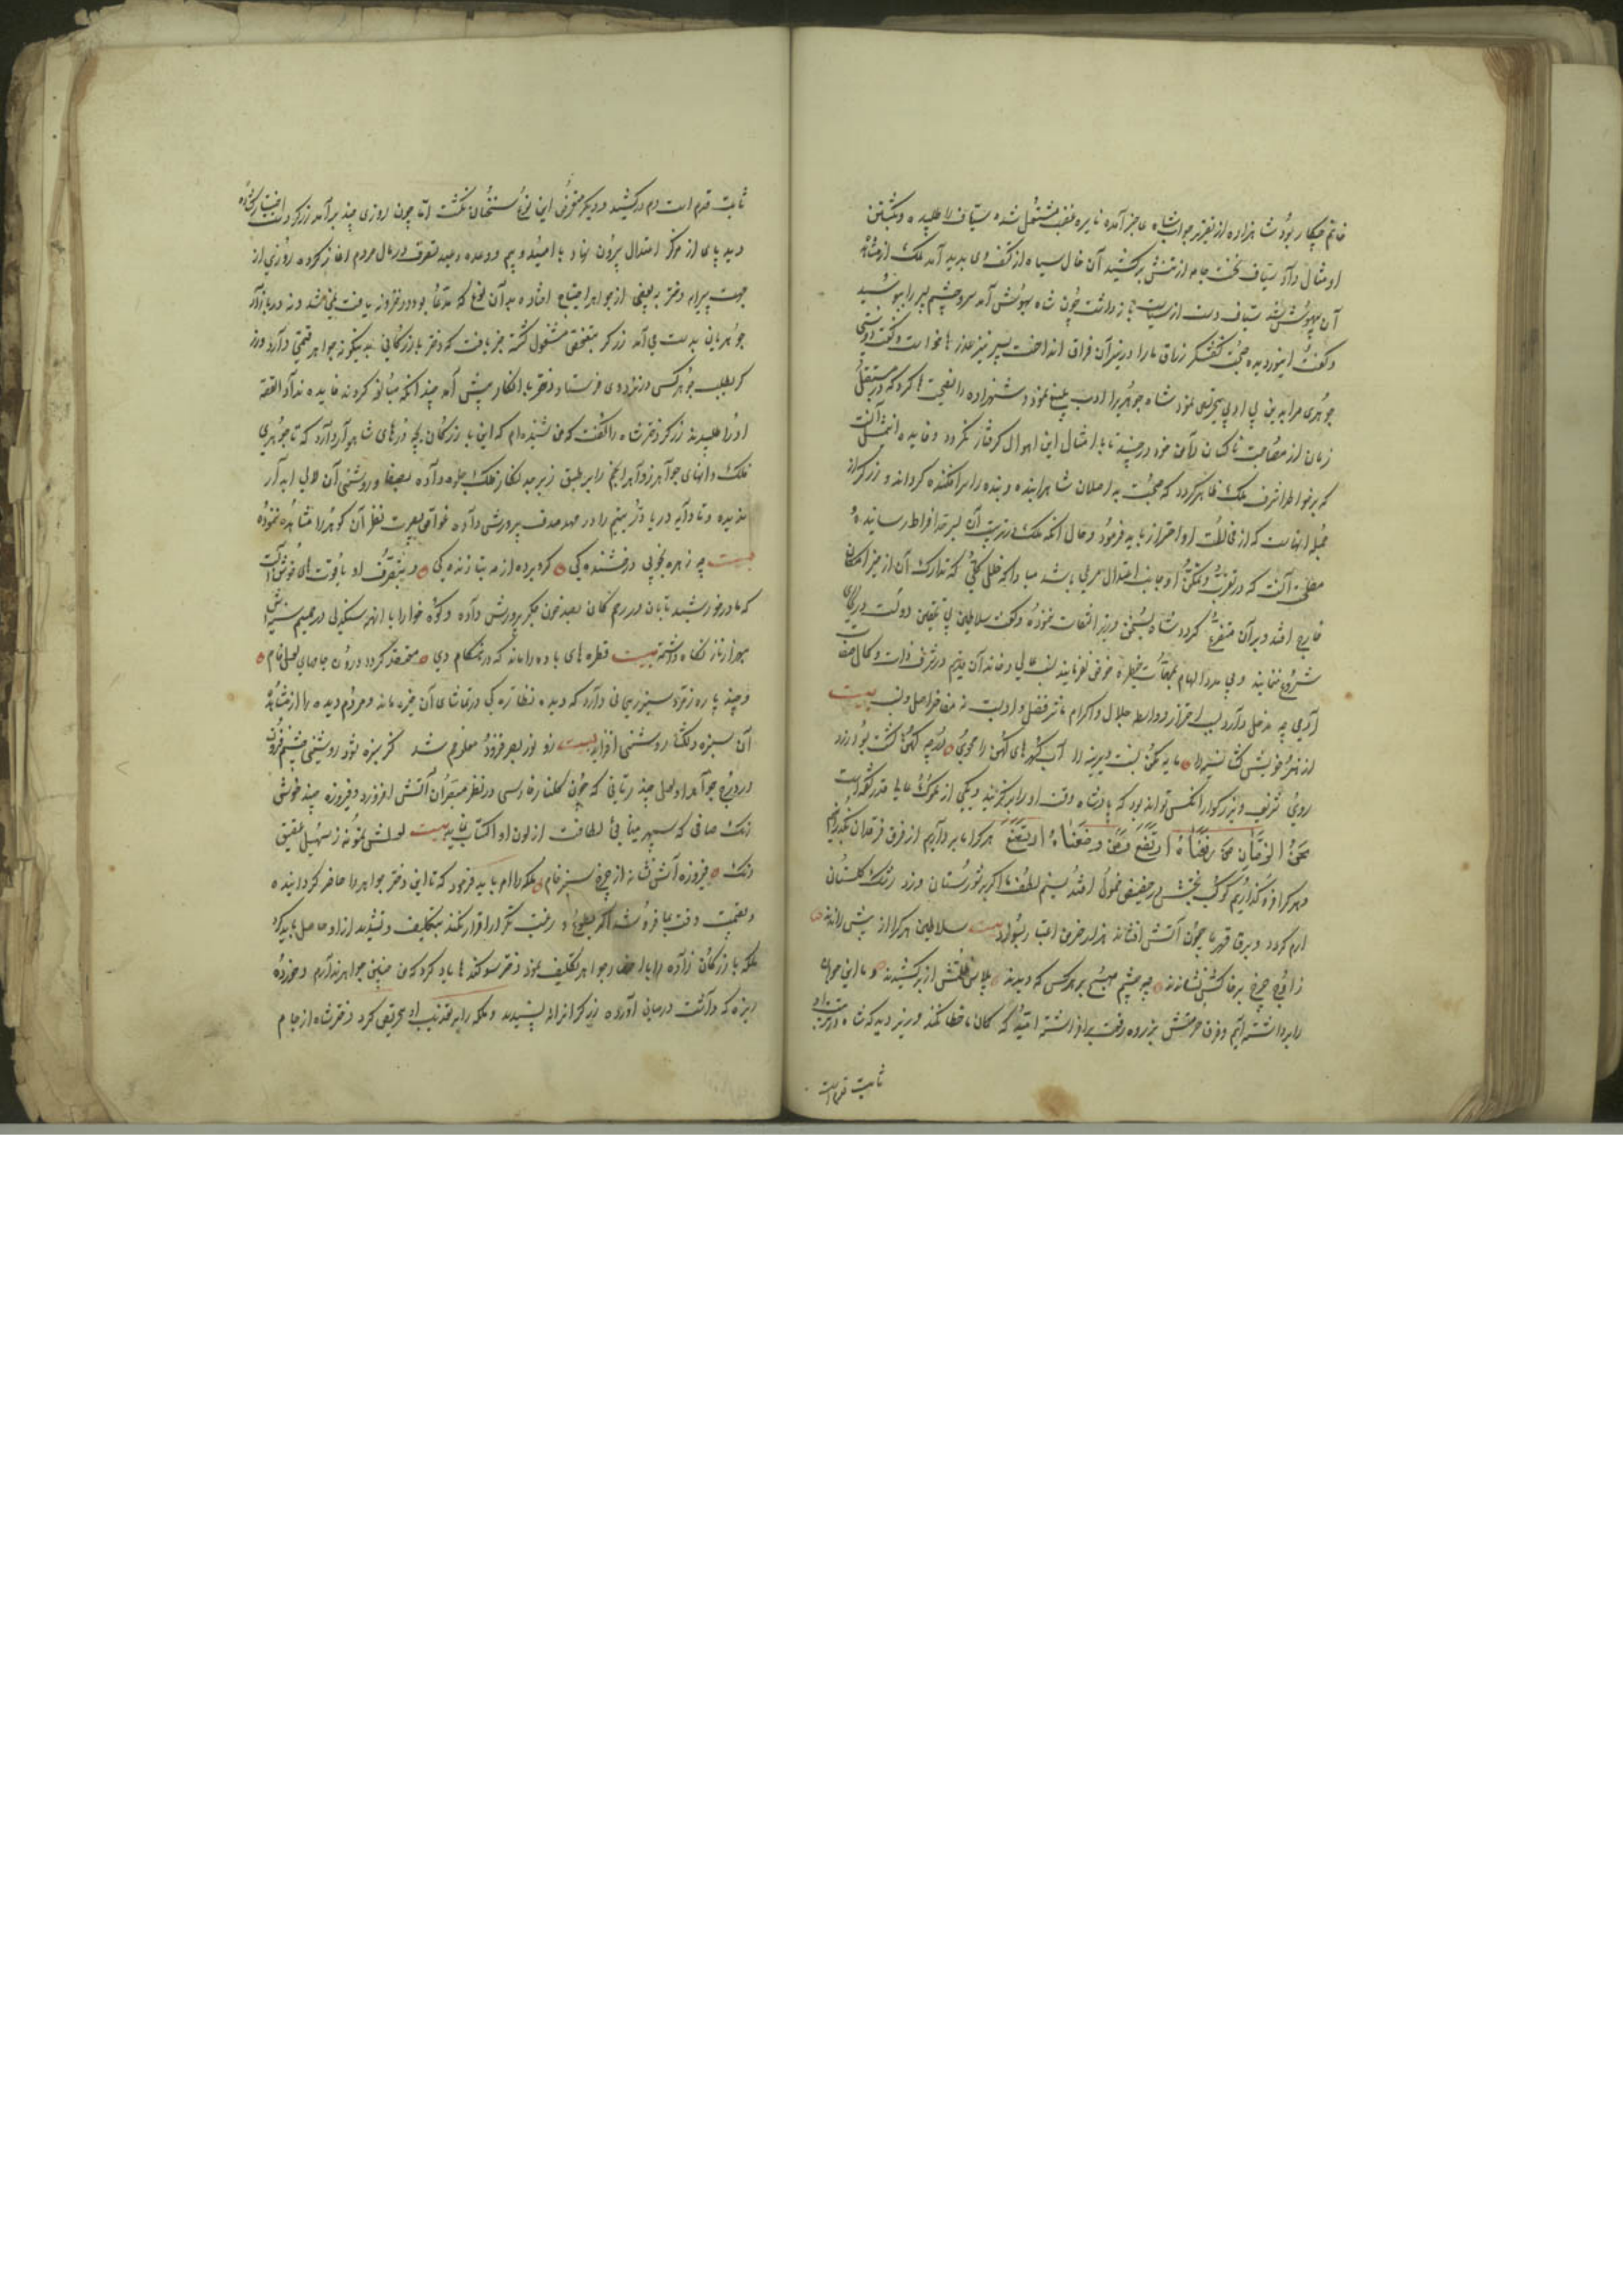 خاتم چکار بود شاهزاده از تقریر جواب شاه عاجز آمده نایره غضب مشتعل شده سیاف را طلبیده و بکشتن
او مثال داد سیاف نخست جامه از تنش برکشید آن خال سیاه از کتف وی پدید آمد ملک از مشاهده
آن بیهوش شد سیاف دست از سیاست بازداشت چون شاه بهوش آمد سر و چشم پسر را ببوسید
و گفت اینوردیده صحبت کفشگر زمان مارا در آن فراق انداخت پسر نیز عذرها خواست و گفت
جوهری مرا بدین بی ادبی تحریص نمود شاه جوهری را ادب بلیغ نمود و شهزاده را نصیحت ها کرد که در مستقبل
زمان از مصاحبت ناکسان دامن خود درچیند تا با امثال این اهوال گرفتار نگردد و فایده
که بر خواطر اشرف ملک ظاهر گردد که صحبت بد اصلان شاهرا بنده و بنده را سرافکنده گرداند و زرگر از
جمله انهاست که از مخالطت او احتراز باید فرمود و حال آنکه ملک در تربیت آن بسرحد افراط رسانیده
مصلحت آنست که در تقرب و تمکن او جانب اعتدال مرعی باشد مبادا که خللی کلی که تدارک آن از حیز امکان
خارج افتد و بر آن متفرع گردد شاه بسخن وزیر التفات ننموده و گفت سلاطین بی تحقیق دولت در کاری
شروع ننمایند و بی مدد الهام بمهمات خطیره خوض نفرمایند نسب عالی و خاندان قدیم در شرف ذات و کمال صفات
آدمی چه مدخل دارد سبب احتراز و رابطه جلال و اکرام مآثر فضل و ادبست نه مفاخر اصل و نسب بیت
از هنر خویش گشا سینه را مایه مکن نسبت دیرینه را آب گهرهای کهن را مجوی گرچه کهن گشت بود زرد
روی شریف و بزرگوار آنکسی تواند بود که پادشاه وقت او را برگزیند و یکی از ملوک عالی قدر گفته است
نحن الزمان من رفعناه ارتفع و من وضعناه اتضع هر کرا ما برداریم از فرق فرقدان بگذرانیم
و هر کرا فرو گذاریم کوکب بختش در حضیض خمول افتد نسیم لطف ما اگر بر شورستان وزد رشک گلستان
ارم گردد و برق قهر ما چون آتش افشاند هزار خرمن اعتبار بسوزد بیت سلاطین هر کرا از پیش رانند
زاوج چرخ بر خاکش نشانند چه چشم هیچ بر هر کس که دیدند پلاس ظلمتش از بر کشیدند و ما این جوان
را برداشته ایم و فرق حرمتش بزروه رفعت برافراشته امید که گمان ما خطا نکند وزیر دید که شاه در تربیت او
ثابت قدم است
ثابت قدم است دم درکشید و دیگر متعرض این نوع سخنان نگشت اما چون روزی چند برآمد زرگر دست اختیار گشاده
دید پای از مرکز اعتدال بیرون نهاد و با امید و بیم و وعده و وعید تصرف در مال مردم آغاز کرد روزی از
جهت پیرایه دختر ببعضی از جواهر احتیاج افتاد و بدآن نوع که مدعا بود در خزانه یافت نمی شد و نه در بازار
جوهریان بدست می آمد زرگر بتفحص مشغول گشته خبر یافت که دختر بازرگانی بدینگونه جواهر قیمتی دارد زر
گر بطلب جوهر کس در نزد وی فرستاد دختر با انکار پیش آمد چندانکه مبالغه کردند فایده نداد القصه
او را طلبیدند زرگر دختر شاه را گفت که من شنیده ام که این بازرگان بچه درهای شاهوار دارد که تا جوهری
فلک دانهای جواهر زواهر انجم را بر طبق زبرجد نگار فلک جلوه داده بصفا و روشنی آن لآلی آبدار
ندیده و تا دایه دریا در یتیم را در مهد صدف پرورش داده غواص بصیرت نظیر آن گوهر را مشاهده ننموده
بیت چه زهره بخوبی درخشنده یکی کرو برده از مه بتابندگی و بتصرف او یاقوت های خوش آبست
که مادر خورشید تابان در رحم کان بعد خون جگر پرورش داده و کوه خوارا با انهمه سنگدلی در صمیم سینه اش
بهزار ناز نگاه داشته بیت قطره های باده را ماند که در هنگام دی منعقد گردد درون جامهای لعل فام
و چند پاره زمرد سبز ریحانی دارد که دیده نظارگی در تماشای آن خیره ماند و مردم دیده را از مشاهده
آن سبزه دلگشا روشنی افزاید بیت زو نور بصر فزود معلوم شد کز سبزه شود روشنی چشم فزون
و در درج جواهر او لعل چند رمانی که چون گلنار فارسی در نظر مبصران آتش افروزد و فیروزه چند خوش
رنگ صافی که سپهر مینایی لطافت از لون او اکتساب نماید بیت لعلش نمونه ز سهیل عقیق
رنگ فیروزه آتش نشانه از چرخ سبز فام ملکه را امر باید فرمود که تا این دختر جواهر را حاضر گردانیده
و بقیمت وقت بما فروشد اگر بطوع و رغبت نگوید و اقرار نکند بتکلیف و تشدید از او حاصل باید کرد
ملکه بازرگان زاده را باحضار جواهر تکلیف نمود دختر سوگندها یاد کرد که من چنین جواهر ندارم و خورده
ریزه که داشت در میان آورده زرگر انرا نپسندید و ملکه را بر تعذیب او تحریص کرد دختر شاه از جام